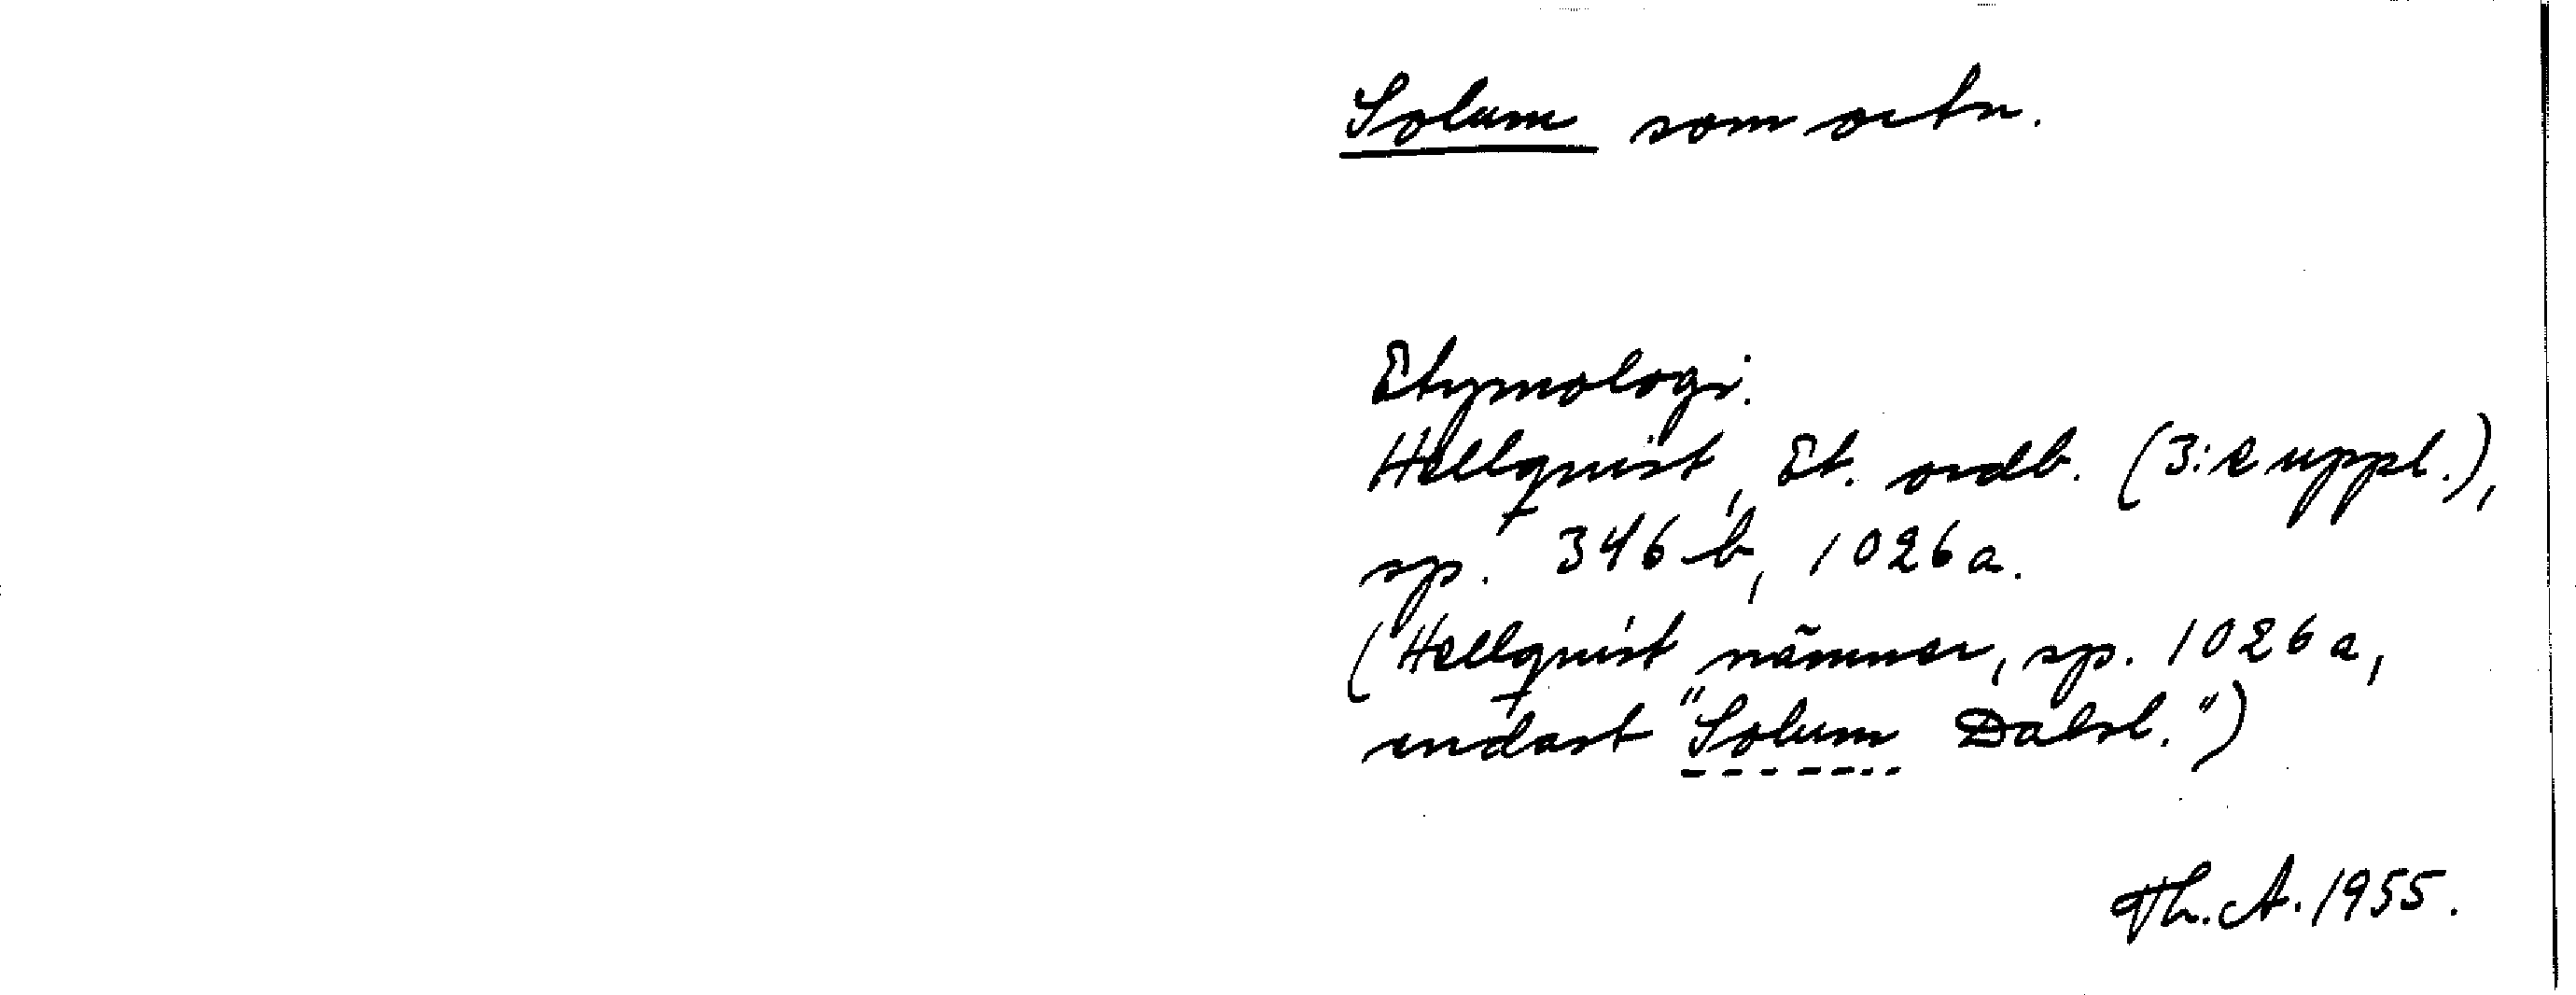 Solum som ortn.
Etymologi.
Hellquist, Et. ordb. (3:e uppl.),
sp. 346 b, 1026 a.
(Hellquist nämner, sp. 1026 a,
endast "Solum Dalsl.")
Th. A. 1955.